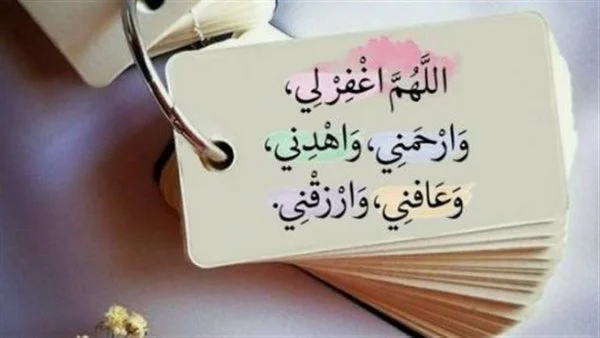 اللَّهُمَّ اغْفِرْ لِي،
وَارْحَمْنِي، وَاهْدِنِي،
وَعَافِنِي، وَارْزُقْنِي.